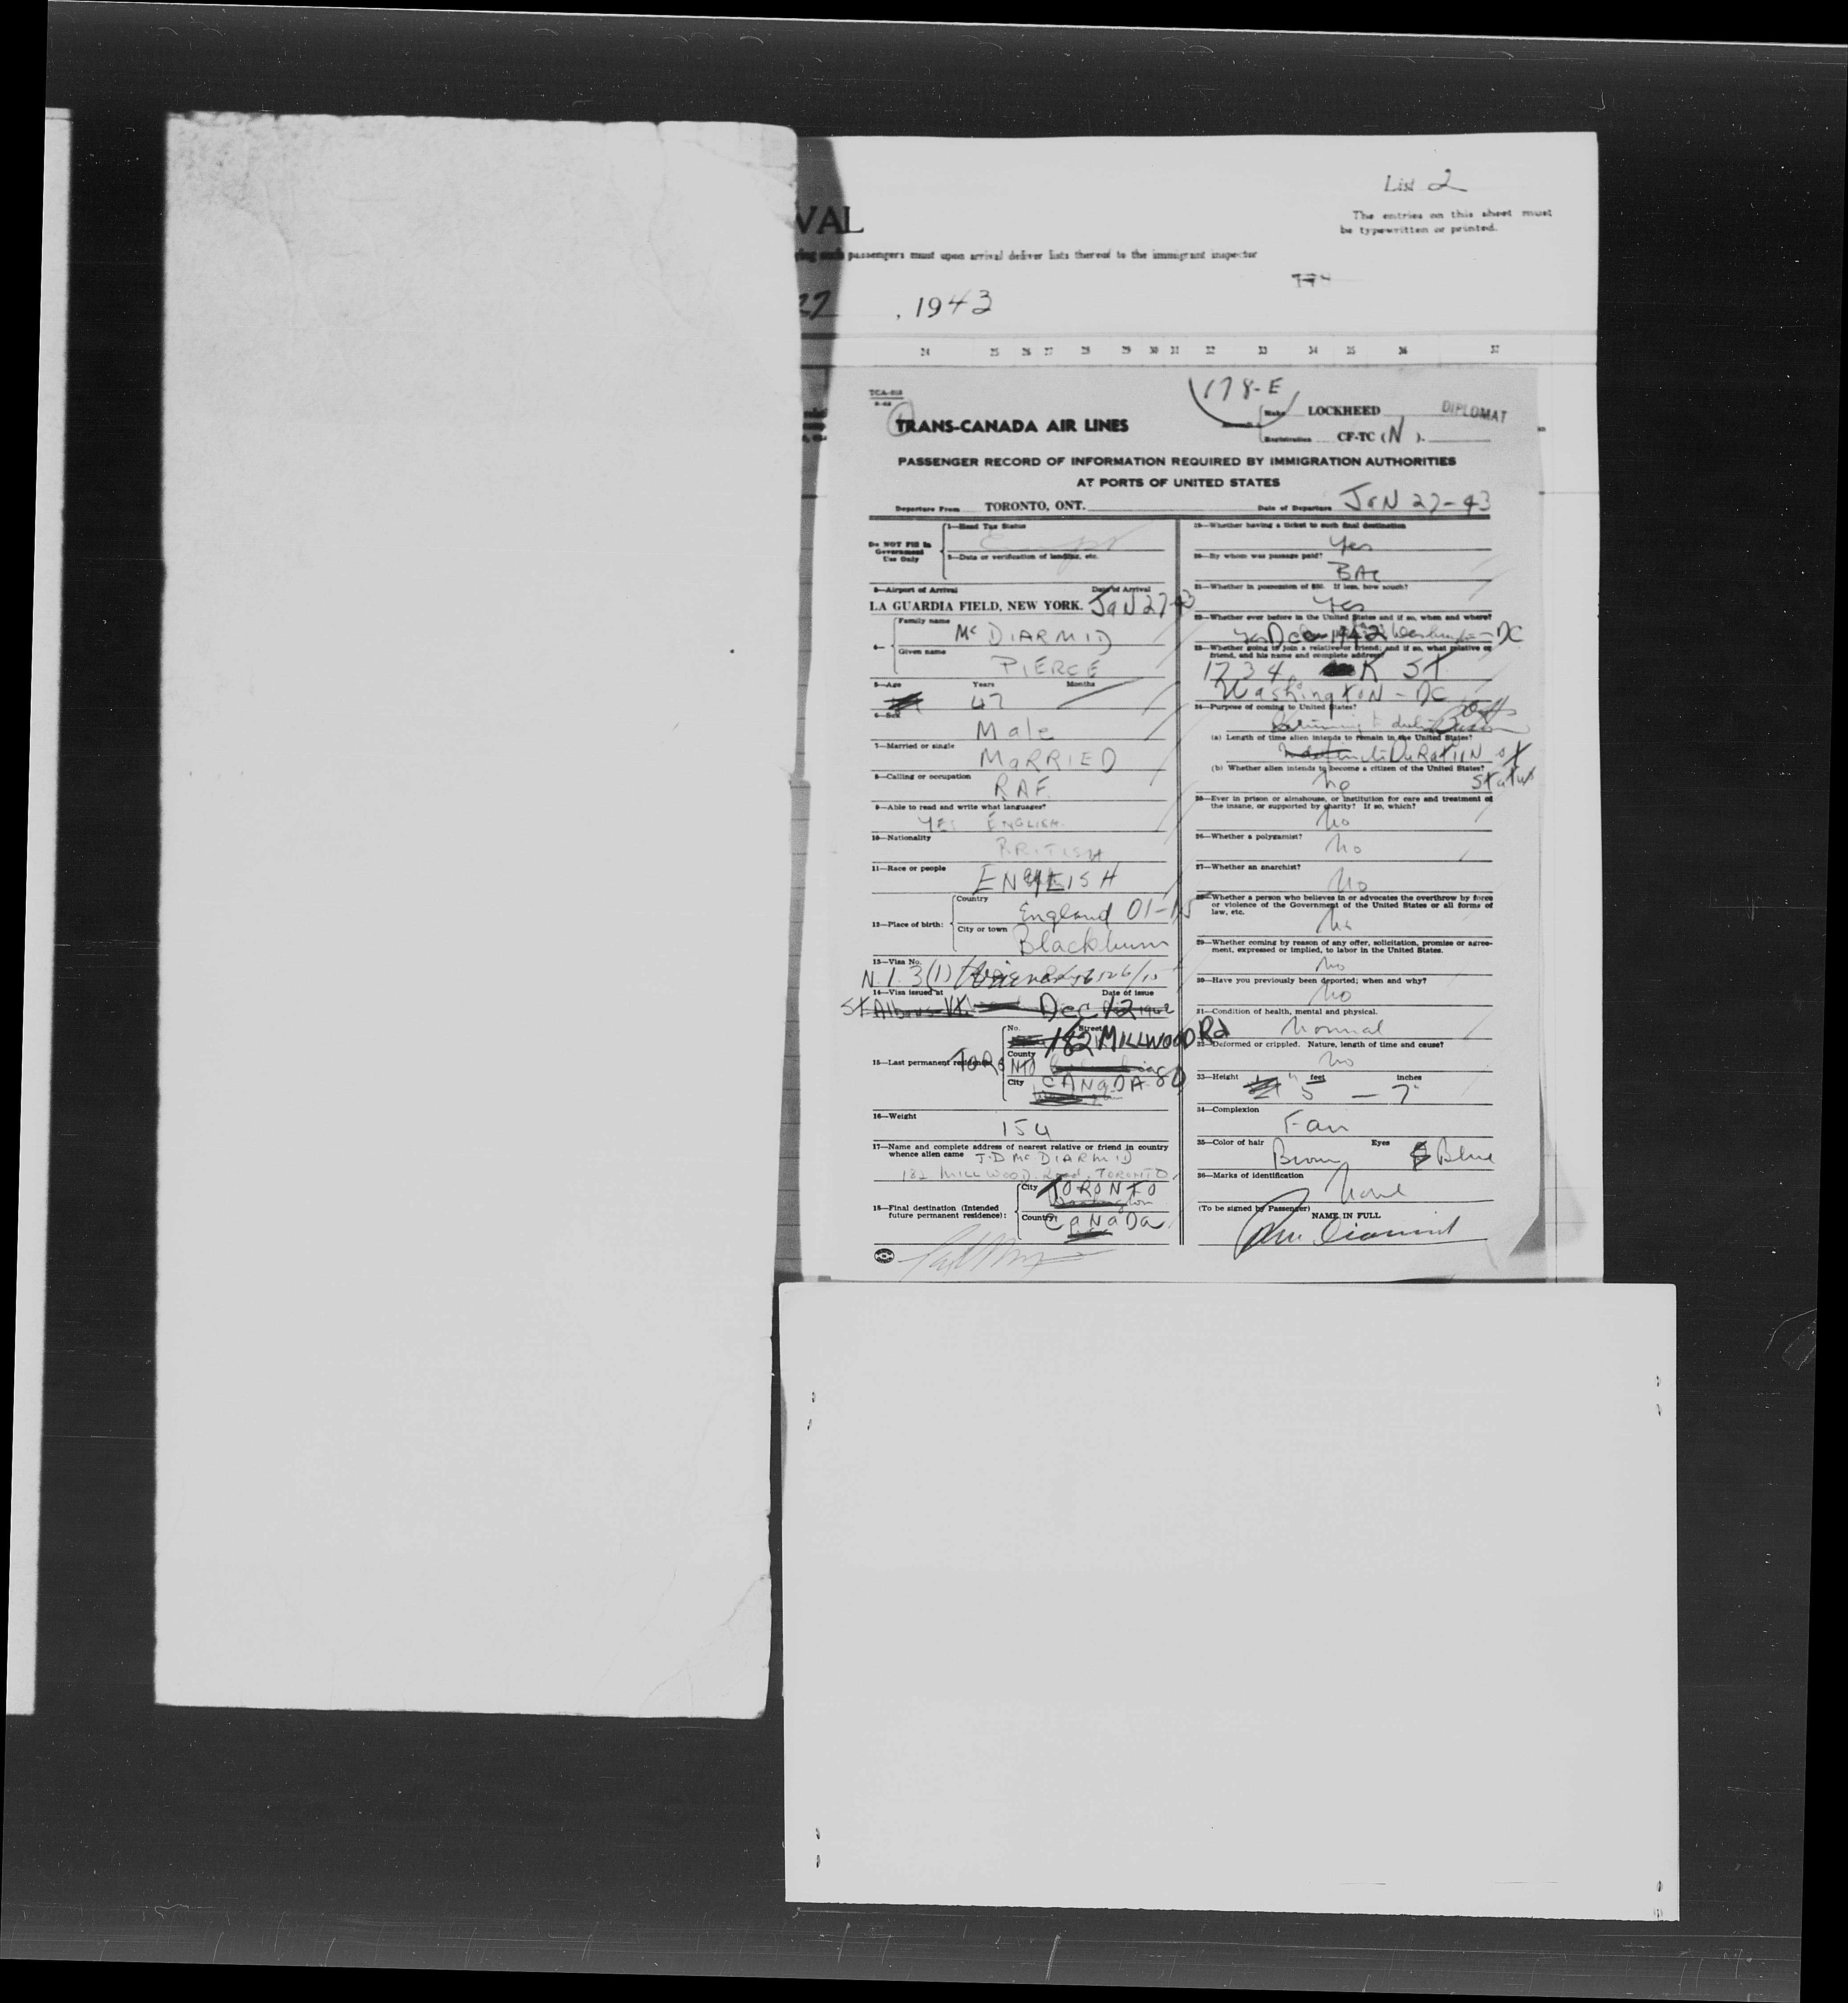 List 2
The entries on this sheet must
be typewritten or printed.
VAL
passengers must upon arrival deliver lists thereof to the immigrant inspector
27, 1943
24 25 26 27 28 29 30 31 32 33 34 35 36 37
178-E
TRANS-CANADA AIR LINES
Make LOCKHEED
DIPLOMAT
Registration CF-TC (N).
PASSENGER RECORD OF INFORMATION REQUIRED BY IMMIGRATION AUTHORITIES
AT PORTS OF UNITED STATES
Departure From TORONTO, ONT. Date of Departure JaN 27-43
Do NOT Fill In
Government
Use Only
1—Head Tax Status
2—Date or verification of landing, etc.
3—Airport of Arrival Date of Arrival
LA GUARDIA FIELD, NEW YORK. JaN 27 43
4— Family name
Mc DIARMID
Given name
PIERCE
5—Age Years Months
47
6—Sex
Male
7—Married or single
MaRRIED
8—Calling or occupation
RAF.
9—Able to read and write what languages?
YES ENGLISH.
10—Nationality
BRITISH
11—Race or people
ENGLISH
12—Place of birth:
Country
England 01-15
City or town
Blackburn
13—Visa No.
N.I. 3(1)
14—Visa issued at Date of issue
St Albans Vt. Dec 12 1942
15—Last permanent residence
No. Street
182 MILLWOOD Rd
County
TORONTO
City
CANaDA
16—Weight
154
17—Name and complete address of nearest relative or friend in country
whence alien came J.D Mc.DIARMID
182 MILLWOOD Road, TORONTO
18—Final destination (Intended
future permanent residence):
City TORONTO
Washington
Country CaNaDa
19—Whether having a ticket to such final destination
Yes
20—By whom was passage paid?
BAC
21—Whether in possession of $50. If less, how much?
Yes
22—Whether ever before in the United States and if so, when and where?
Yes Dec 1942 Washington DC
23—Whether going to join a relative or friend; and if so, what relative or
friend, and his name and complete address?
1734 K St.
Washington - DC
24—Purpose of coming to United States?
Returning to duties
(a) Length of time alien intends to remain in the United States?
Indefinite DuRatiIN of
Status
(b) Whether alien intends to become a citizen of the United States?
no
25—Ever in prison or almshouse, or institution for care and treatment of
the insane, or supported by charity? If so, which?
No
26—Whether a polygamist?
No
27—Whether an anarchist?
No
28—Whether a person who believes in or advocates the overthrow by force
or violence of the Government of the United States or all forms of
law, etc.
No
29—Whether coming by reason of any offer, solicitation, promise or agree-
ment, expressed or implied, to labor in the United States.
No
30—Have you previously been deported; when and why?
No
31—Condition of health, mental and physical.
Normal
32—Deformed or crippled. Nature, length of time and cause?
No
33—Height feet inches
5 — 7
34—Complexion
Fair
35—Color of hair Eyes
Brown Blue
36—Marks of identification
None
(To be signed by Passenger)
NAME IN FULL